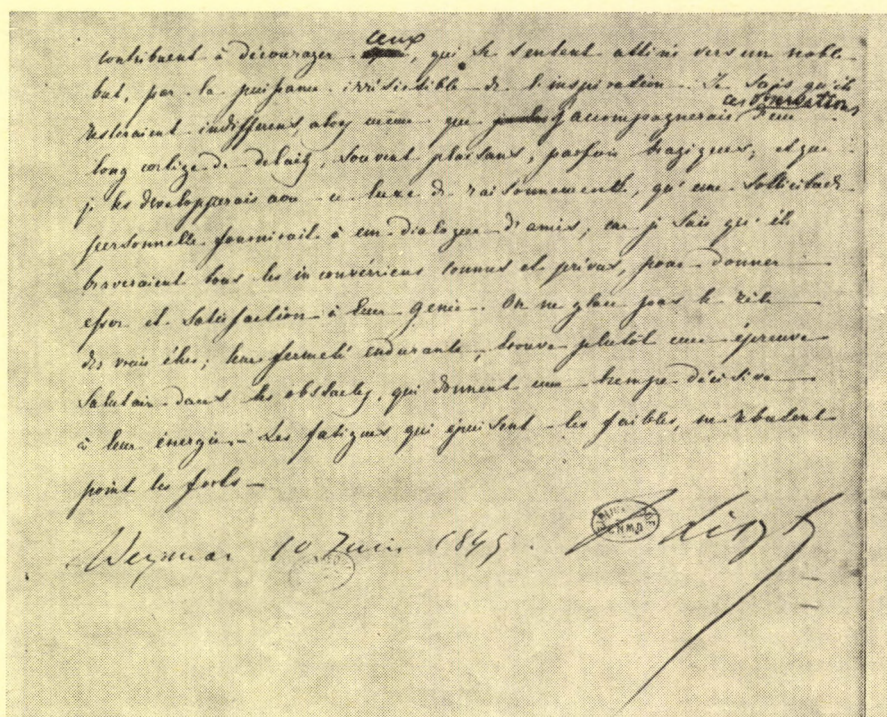 contribuent à décourager ceux, qui se sentent attirés vers un noble
but, par la puissance irrésistible de l'inspiration. Je sais qu'ils
resteraient indifférens, alors même que j'accompagnerais ces observations d'un
long cortège de détails, souvent plaisans, parfois tragiques; et que
je les développerais avec ce luxe de raisonnements, qu'une sollicitude
personnelle fournirait à un dialogue d'amis, car je sais qu'ils
braveraient tous les inconvéniens connus et prévus, pour donner
essor et satisfaction à leur génie. On ne glace pas le zèle
des vrais élus; leur fermeté endurante, trouve plutôt une épreuve
salutaire dans les obstacles, qui donnent une trempe décisive
à leur énergie. Les fatigues qui épuisent les faibles, ne rebutent
point les forts —
Weymar 10 Juin 1849. F Liszt